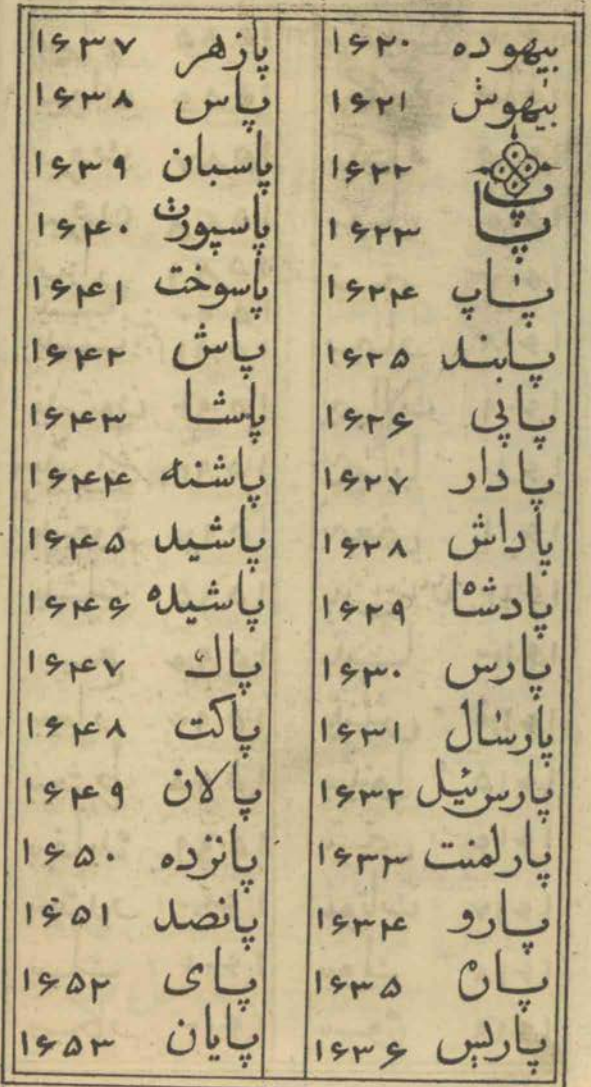 بیهوده ۱۶۲۰
بیهوش ۱۶۲۱
پ ۱۶۲۲
پا ۱۶۲۳
پاپ ۱۶۲۴
پابند ۱۶۲۵
پاپی ۱۶۲۶
پادار ۱۶۲۷
پاداش ۱۶۲۸
پادشاه ۱۶۲۹
پارس ۱۶۳۰
پارسال ۱۶۳۱
پارس ئیل ۱۶۳۲
پارلمنت ۱۶۳۳
پارو ۱۶۳۴
پاره ۱۶۳۵
پاریس ۱۶۳۶
پازهر ۱۶۳۷
پاس ۱۶۳۸
پاسبان ۱۶۳۹
پاسپورت ۱۶۴۰
پاسوخت ۱۶۴۱
پاش ۱۶۴۲
پاشا ۱۶۴۳
پاشنه ۱۶۴۴
پاشید ۱۶۴۵
پاشیده ۱۶۴۶
پاك ۱۶۴۷
پاکت ۱۶۴۸
پالان ۱۶۴۹
پانزده ۱۶۵۰
پانصد ۱۶۵۱
پای ۱۶۵۲
پایان ۱۶۵۳